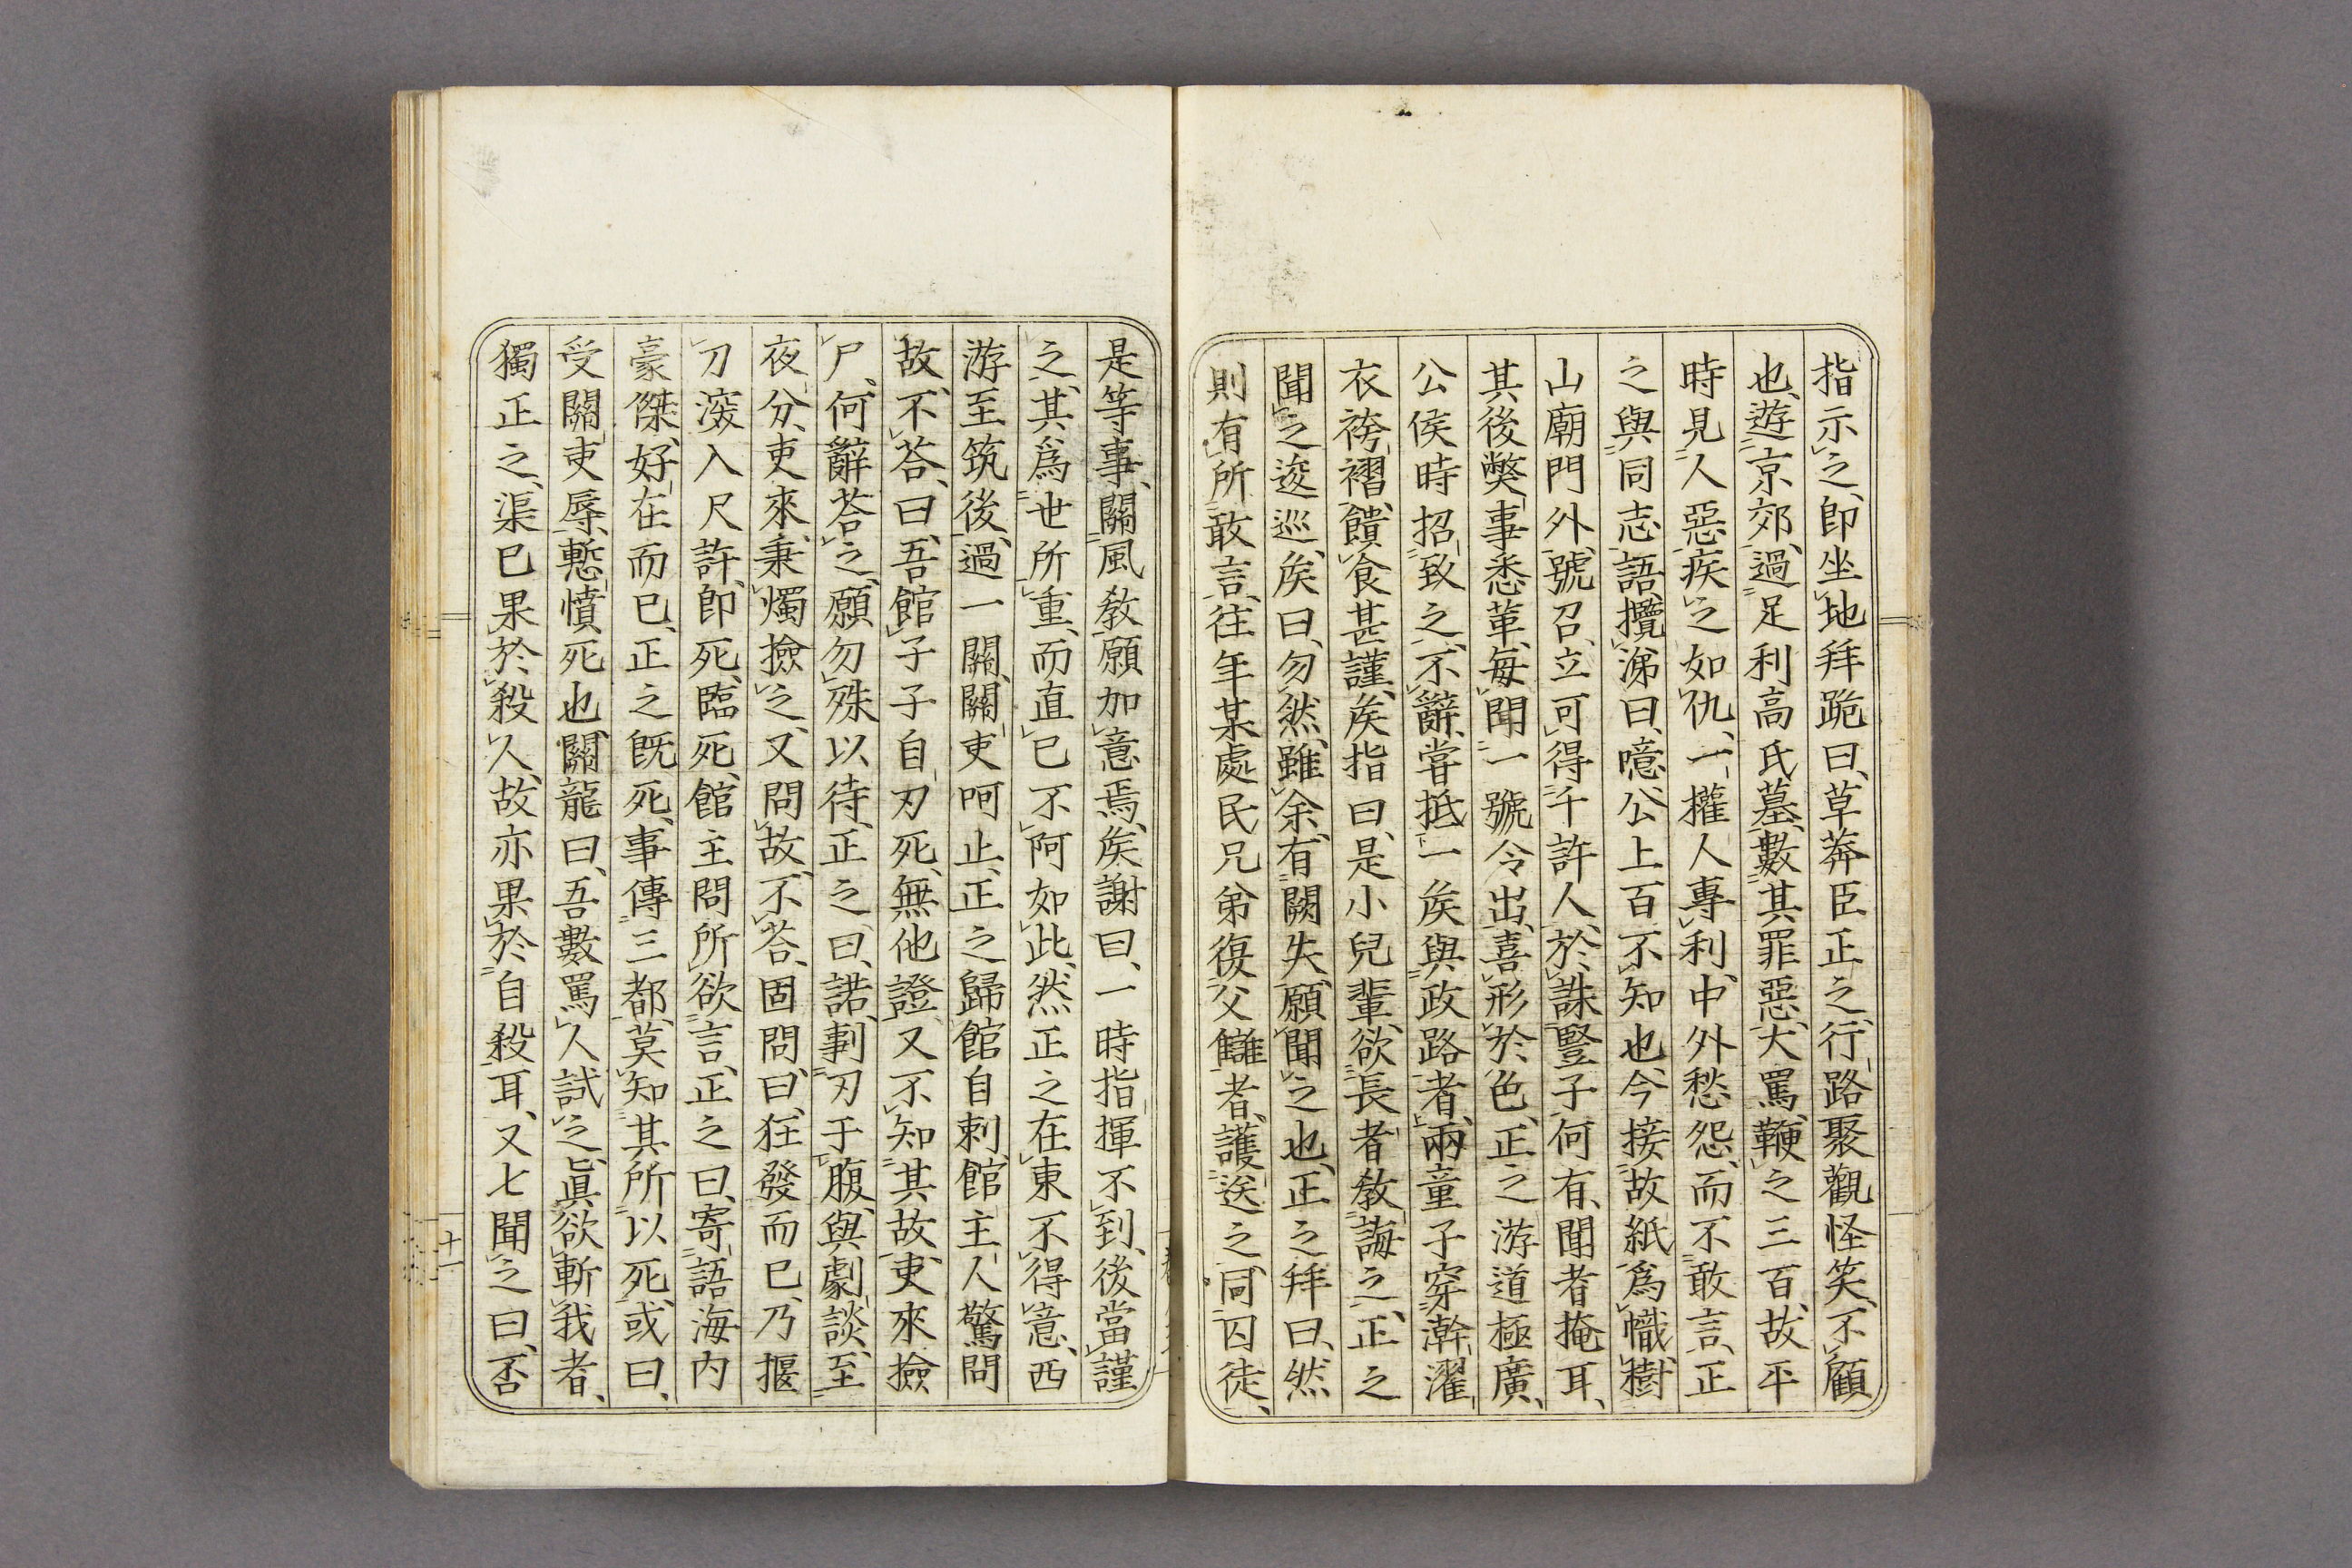 指示之、即坐地拜跪曰、草莽臣正之、行路聚觀怪笑、不顧
也、遊京郊、過足利高氏墓、數其罪惡、大罵鞭之三百、故平
時見人惡疾之如仇、一權人專利、中外愁怨、而不敢言、正
之與同志語、攬涕曰、噫公上百不知也、今接故紙爲幟、樹
山廟門外、號召、立可得千許人、於誅豎子何有、聞者掩耳、
其後獘事悉革、每聞一號令出、喜形於色、正之游道極廣、
公侯時招致之、不辭、嘗抵一矦與政路者、兩童子穿澣濯
衣袴褶、饋食甚謹、矦指曰、是小兒輩、欲長者敎誨之、正之
聞之逡巡、矦曰、勿然、雖余、有闕失、願聞之也、正之拜曰、然
則有所敢言、往年某處民兄弟復父讎者、護送之、同囚徒、
是等事、關風敎、願加意焉、矦謝曰、一時指揮不到、後當謹
之、其爲世所重、而直己不阿如此、然正之在東不得意、西
游至筑後、過一關、關吏呵止、正之歸館自刺、館主人驚問
故、不荅、曰、吾館子子自刃死、無他證、又不知其故、吏來撿
尸、何辭荅之、願勿殊以待、正之曰、諾、剚刃于腹、與劇談、至
夜分、吏來、秉燭撿之、又問故、不荅、固問、曰、狂發而已、乃揠
刀深入尺許、即死、臨死、館主問所欲言、正之曰、寄語海内
豪傑、好在而已、正之既死、事傳三都、莫知其所以死、或曰、
受關吏辱、慙憤死也、關龍曰、吾數罵人試之、眞欲斬我者、
獨正之、渠已果於殺人、故亦果於自殺耳、又七聞之曰、否
十一